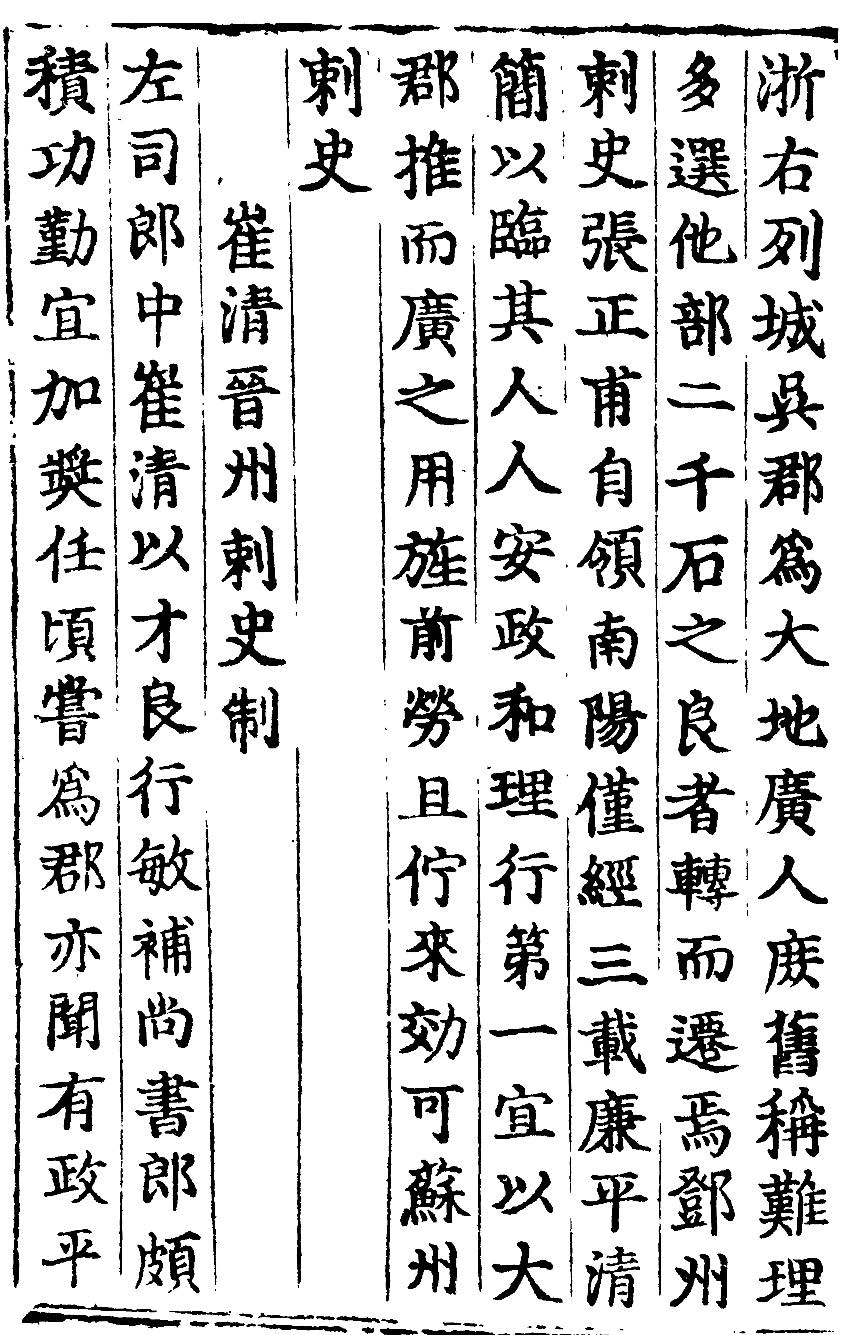 浙右列城吳郡爲大地廣人庻舊稱難理
多選他部二千石之良者轉而遷焉鄧州
刺史張正甫自領南陽僅經三載廉平清
簡以臨其人人安政和理行第一宜以大
郡推而廣之用旌前勞且佇來効可蘇州
刺史
崔清晉州刺史制
左司郎中崔清以才良行敏補尚書郎頗
積功勤宜加奬任頃嘗爲郡亦聞有政平